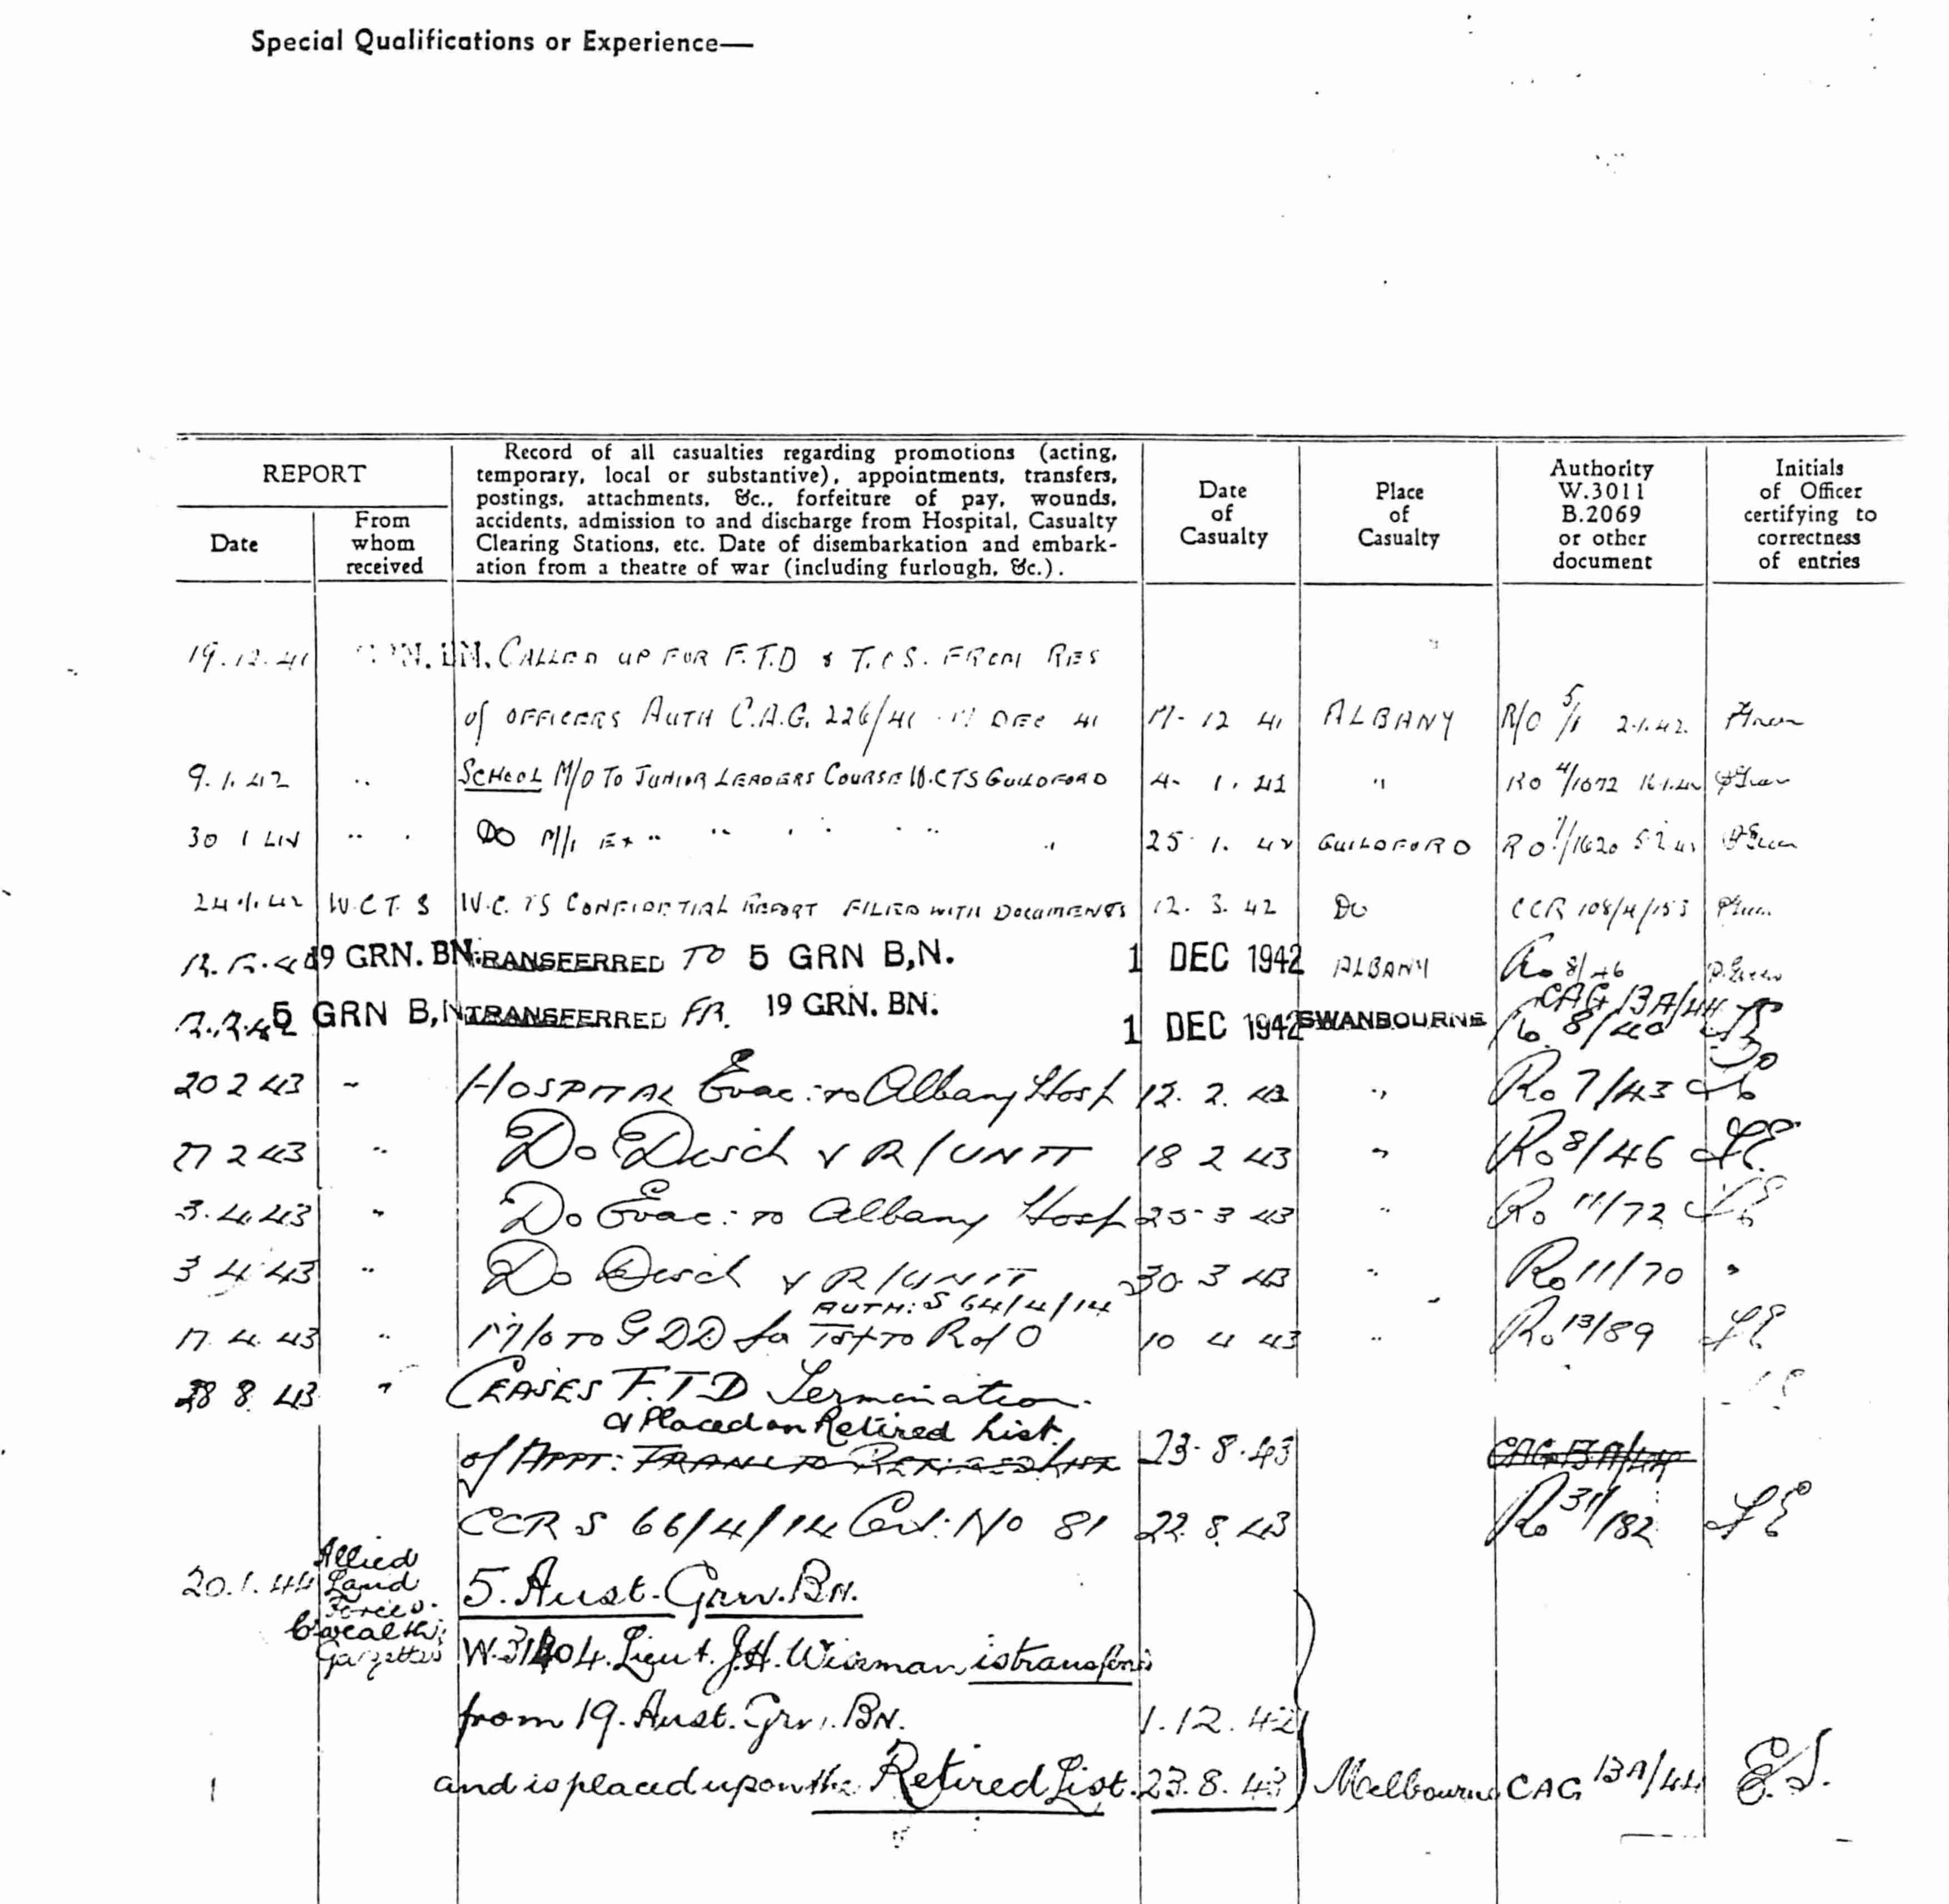 Special Qualifications or Experience—
REPORT
Date
From
whom
received
Record of all casualties regarding promotions (acting,
temporary, local or substantive), appointments, transfers,
postings, attachments, &c., forfeiture of pay, wounds,
accidents, admission to and discharge from Hospital, Casualty
Clearing Stations, etc. Date of disembarkation and embark-
ation from a theatre of war (including furlough, &c.).
Date
of
Casualty
Place
of
Casualty
Authority
W.3011
B.2069
or other
document
Initials
of Officer
certifying to
correctness
of entries
19.12.41 BN. CALLED UP FOR F.T.D & T.C S. FROM RES
of OFFICERS AUTH C.A.G. 226/41 17 DEC 41 17-12 41 ALBANY R/O 5/1 2.1.42.
9.1.42 " SCHOOL M/O TO JUNIOR LEADERS COURSE W.CTS GUILDFORD 4- 1. 42 " RO 4/1072 16.1.42
30 1 42 " DO M/I EX " " " " " 25. 1. 42 GUILDFORD RO 7/1620
24.1.42 W.C T. S W.C. TS CONFIDENTIAL REPORT FILED WITH DOCUMENTS 12. 3. 42 DO CCR 108/4/153
19 GRN. BN. TRANSFERRED TO 5 GRN B,N. 1 DEC 1942 ALBANY Ro 8/46
5 GRN B,N TRANSFERRED FR. 19 GRN. BN. 1 DEC 1942 SWANBOURNE CAG 13A/44 Ro 8/40
20 2 43 " HOSPITAL Evac: to Albany Hosp 12. 2. 43 " Ro 7/43
27 2 43 " Do Disch & R/UNIT 18 2 43 " Ro 8/46 LE
3.4.43 " Do Evac: to Albany Hosp 25-3 43 " Ro 11/72 LE
3 4 43 " Do Disch & R/UNIT 30 3 43 " Ro 11/70 "
AUTH: S 64/4/14
17. 4. 43 " M/O TO GDD for Tsf TO R of O 10 4 43 " Ro 13/89 LE
28 8. 43 " CEASES F.T.D Termination
& Placed on Retired List.
of APPT: TRANS TO RETIRED LIST 23.8.43 CAG 13A/44
CCR S 66/4/14 Cert: No 81 22. 8. 43 Ro 31/182 LE
20.1.44 Allied
Land
Forces.
C'wealth
Gazettes
5. Aust. Grn. BN.
Lieut. J.H. Wisman is transferred
from 19. Aust. Grn. BN. 1.12.42
and is placed upon the Retired List. 23.8.43 Melbourne CAG 13A/44 E.S.